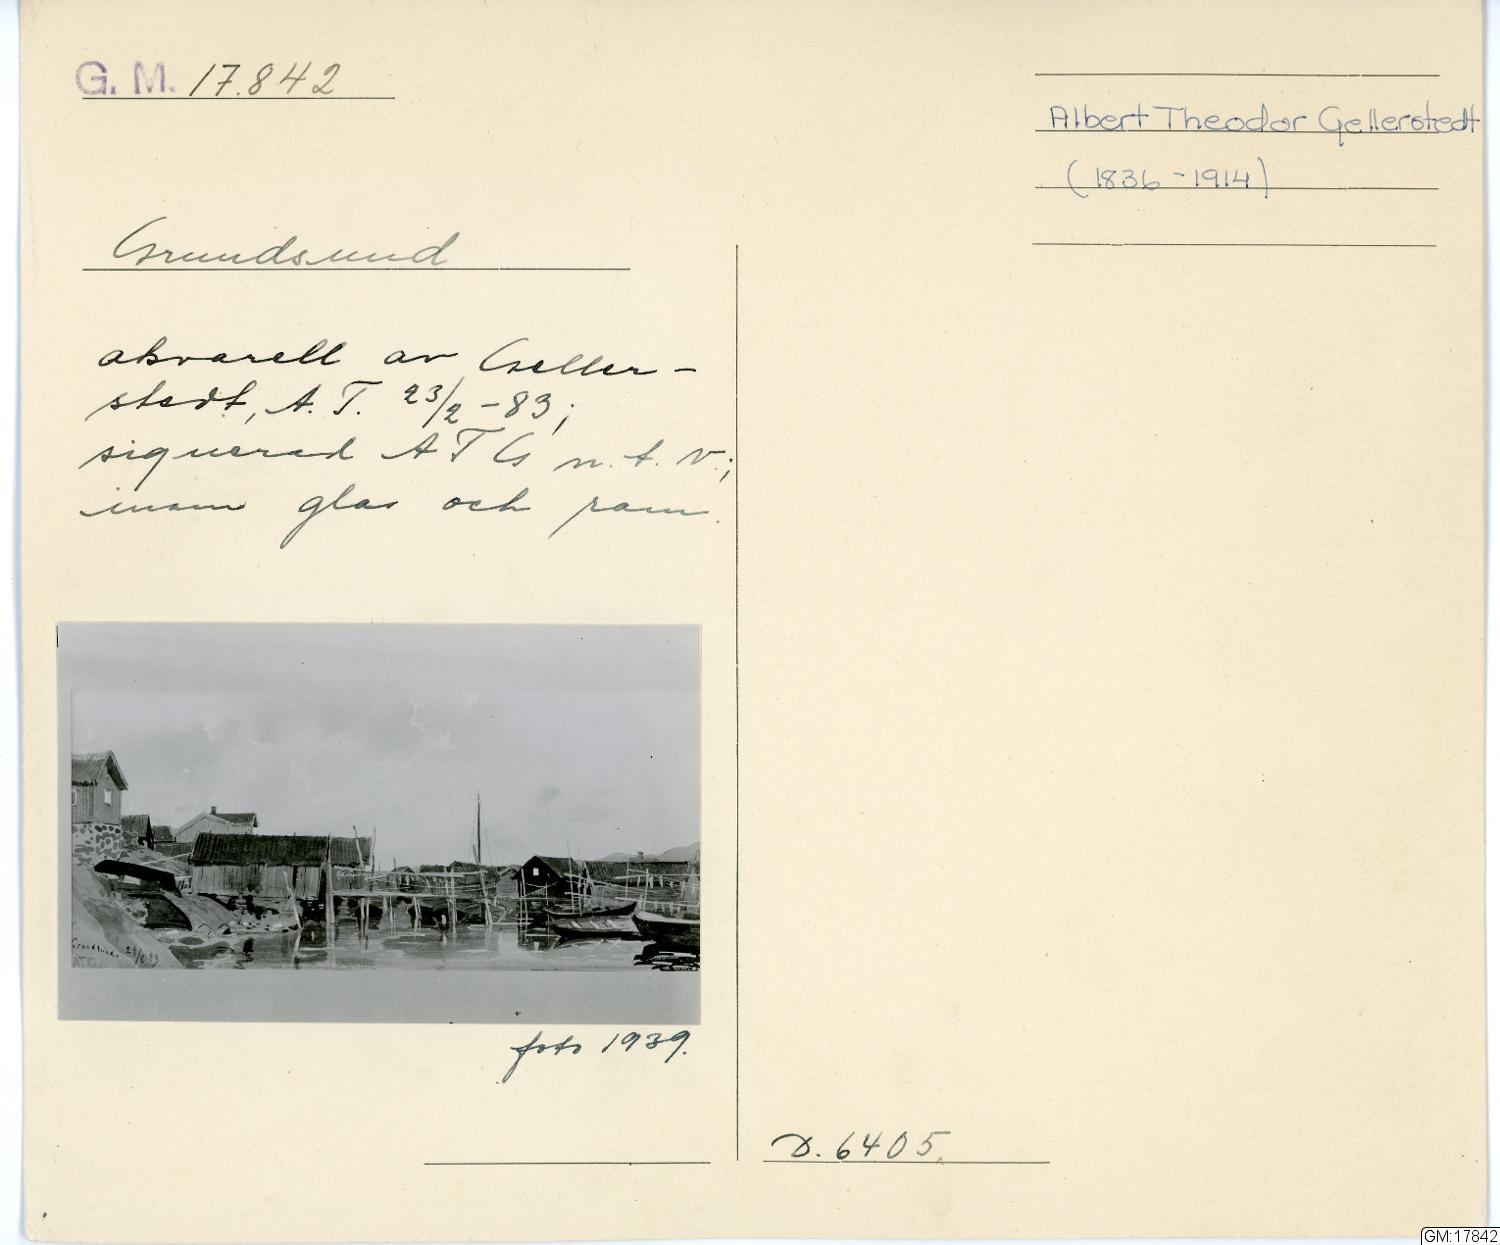 G. M. 17.842
Albert Theodor Gellerstedt
(1836-1914)
Grundsund
akvarell av Geller-
stedt, A. T. 23/2 -83;
signerad A T G n. t. v.;
inom glas och ram.
Grundsund.
ATG.
foto 1939.
D. 6405.
GM:17842